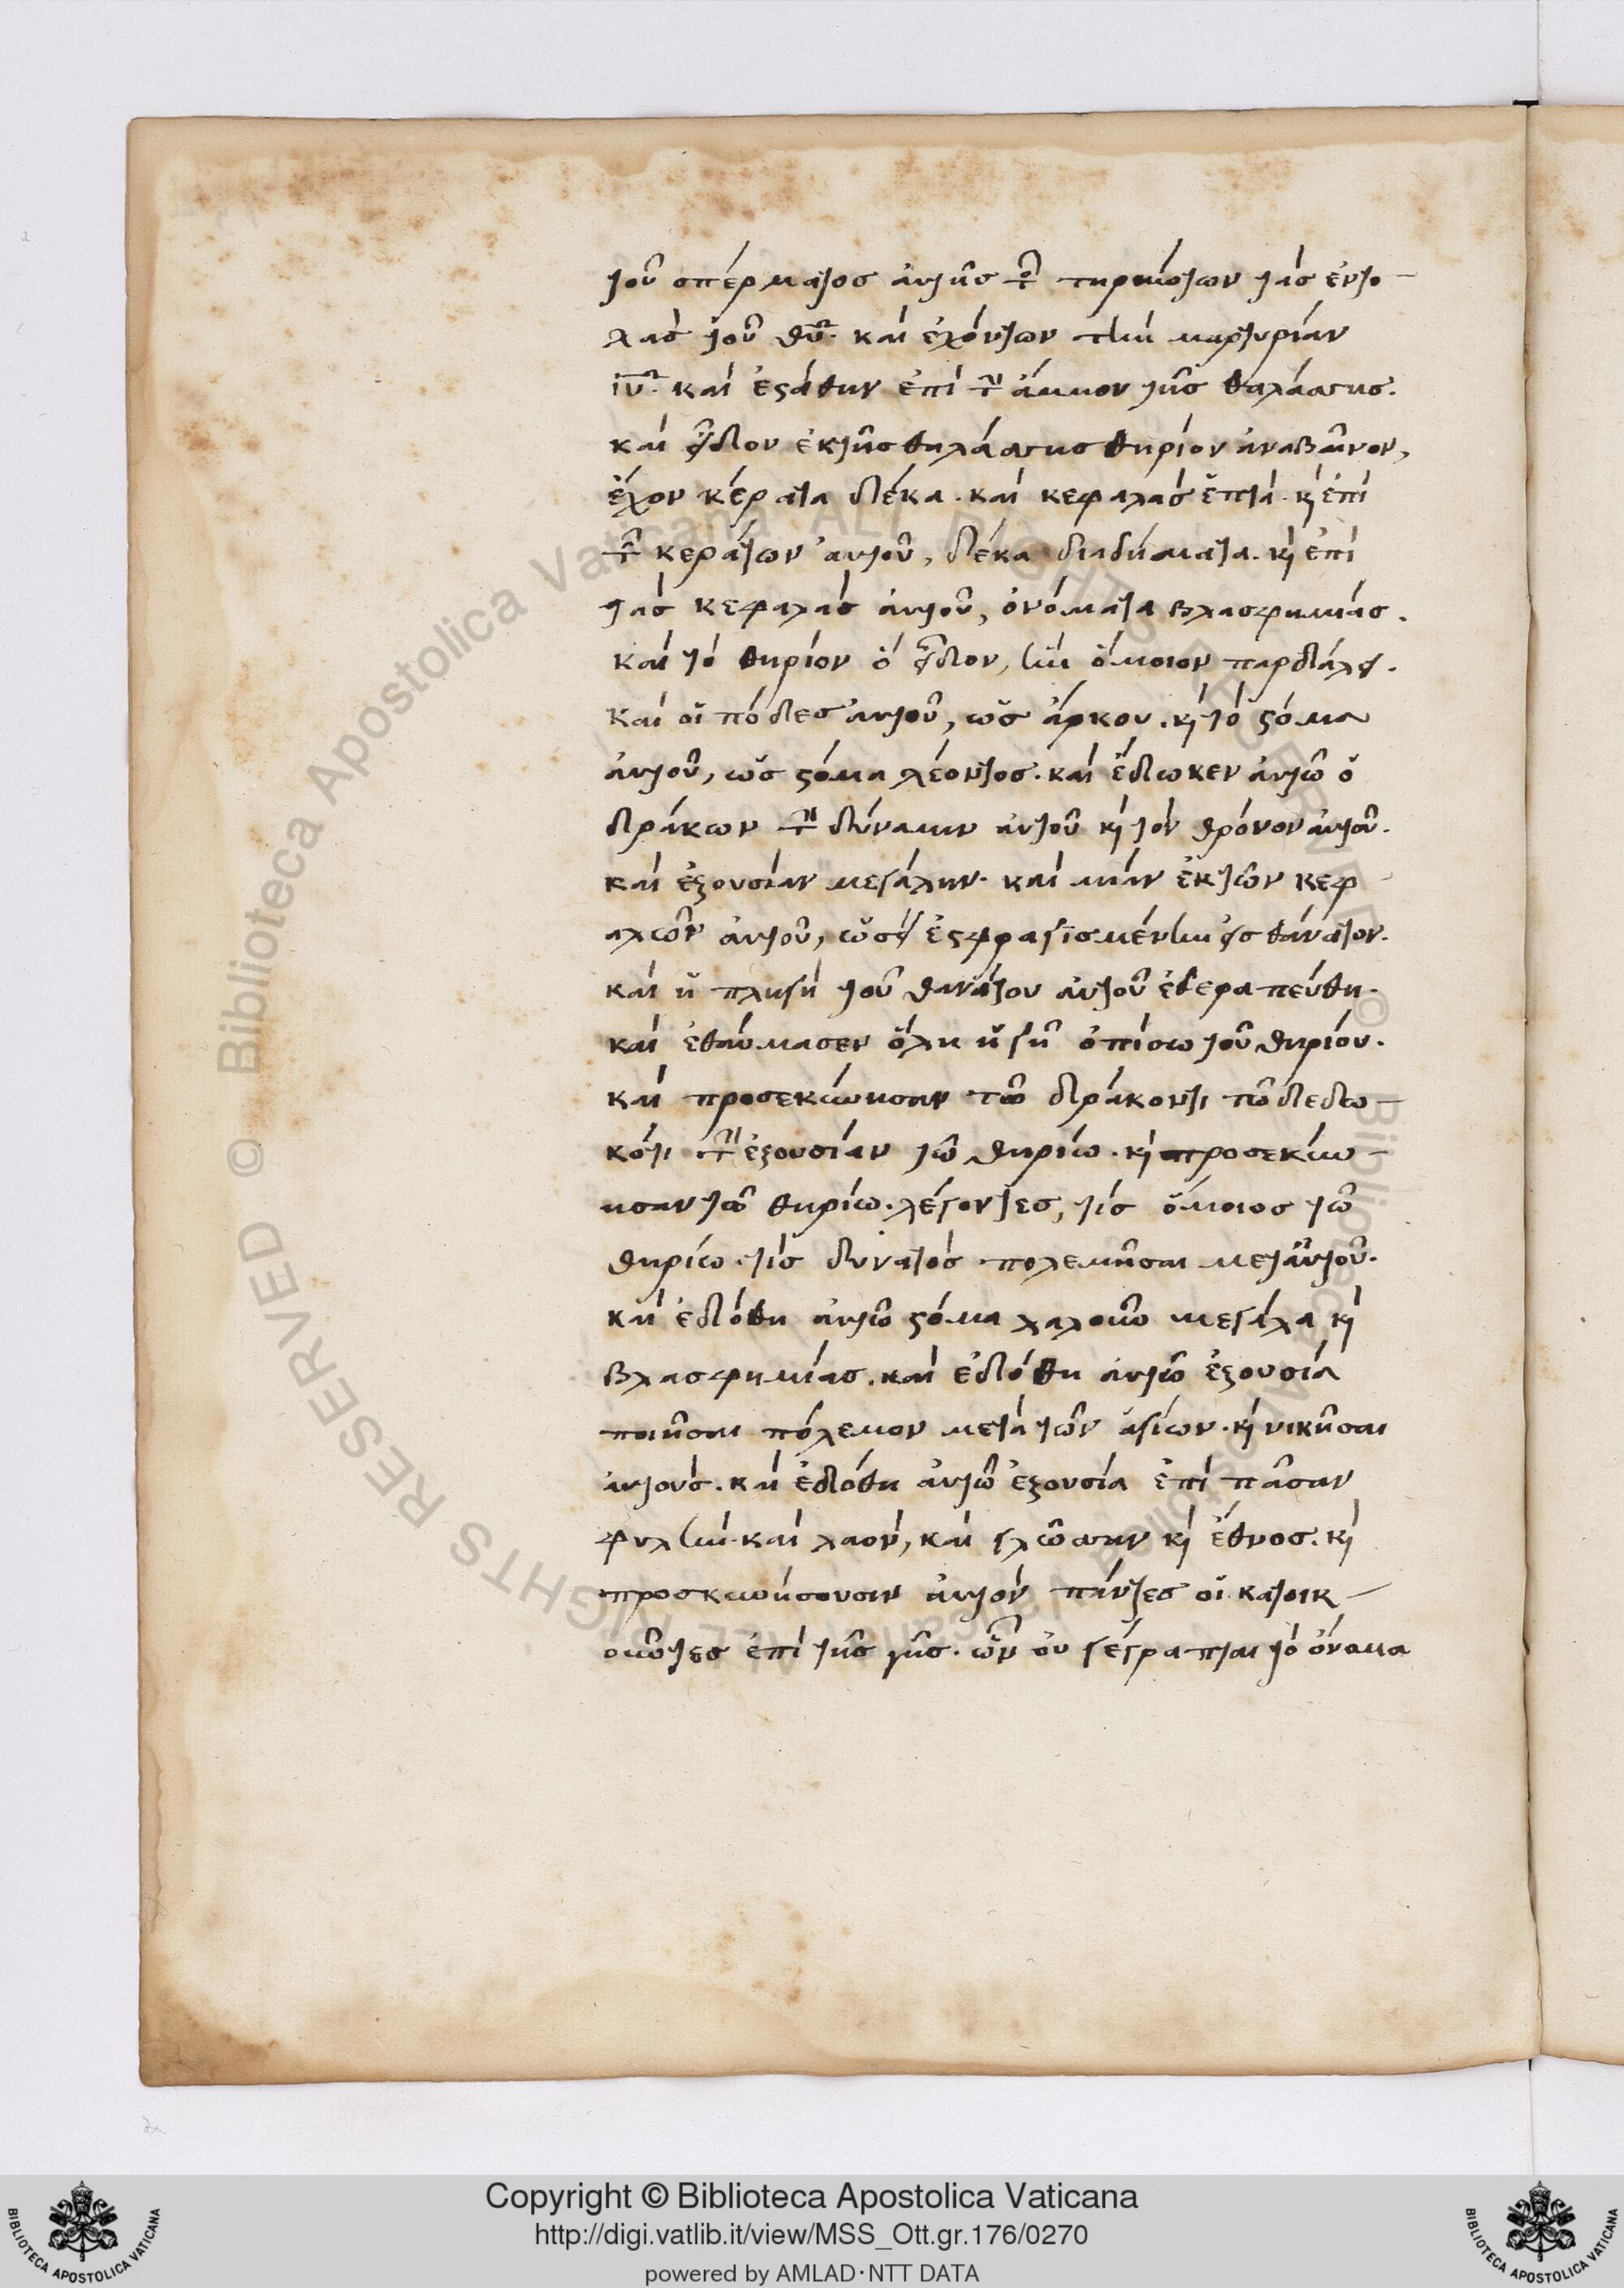 τοῦ σπέρματος αὐτῆς τῶν τηρούντων τὰς ἐντο-
λὰς τοῦ θυ. καὶ ἐχόντων τὴν μαρτυρίαν
ιυ. καὶ ἐστάθην ἐπὶ τὴν ἄμμον τῆς θαλάσσης.
καὶ εἶδον ἐκ τῆς θαλάσσης θηρίον ἀναβαῖνον,
ἔχον κέρατα δέκα. καὶ κεφαλὰς ἑπτά. κὶ ἐπὶ
τῶν κεράτων αὐτοῦ, δέκα διαδήματα. κὶ ἐπὶ
τὰς κεφαλὰς αὐτοῦ, ὀνόματα βλασφημίας.
καὶ τὸ θηρίον ὃ εἶδον, ἦν ὅμοιον παρδάλει.
καὶ οἱ πόδες αὐτοῦ, ὡς ἄρκου. κὶ τὸ στόμα
αὐτοῦ, ὡς στόμα λέοντος. καὶ ἔδωκεν αὐτῶ ὁ
δράκων τὴν δύναμιν αὐτοῦ κὶ τὸν θρόνον αὐτοῦ.
καὶ ἐξουσίαν μεγάλην. καὶ μίαν ἐκ τῶν κεφ
αλῶν αὐτοῦ, ὡσεὶ ἐσφραγισμένην εἰς θάνατον.
καὶ ἡ πληγὴ τοῦ θανάτου αὐτοῦ ἐθεραπεύθη.
καὶ ἐθαύμασεν ὅλη ἡ γῆ ὀπίσω τοῦ θηρίου.
καὶ προσεκύνησαν τῶ δράκοντι τῶ δεδω-
κότι τὴν ἐξουσίαν τῶ θηρίω. κὶ προσεκύν-
ησαν τῶ θηρίω. λέγοντες, τίς ὅμοιος τῶ
θηρίω. τίς δυνατὸς πολεμῆσαι μετ αὐτοῦ.
καὶ ἐδόθη αὐτῶ στόμα λαλοῦν μεγάλα κὶ
βλασφημίας. καὶ ἐδόθη αὐτῶ ἐξουσία
ποιῆσαι πόλεμον μετὰ τῶν ἁγίων. κὶ νικῆσαι
αὐτούς. καὶ ἐδόθη αὐτῶ ἐξουσία ἐπὶ πᾶσαν
φυλὴν. καὶ λαὸν, καὶ γλῶσσαν κὶ ἔθνος. κὶ
προσκυνήσουσιν αὐτὸν πάντες οἱ κατοικ-
οῦντες ἐπὶ τῆς γῆς. ὧν οὐ γέγραπται τὸ ὄνομα
Biblioteca Apostolica Vaticana ALL RIGHTS RESERVED ©
Copyright © Biblioteca Apostolica Vaticana
http://digi.vatlib.it/view/MSS_Ott.gr.176/0270
powered by AMLAD·NTT DATA
BIBLIOTECA APOSTOLICA VATICANA
BIBLIOTECA APOSTOLICA VATICANA